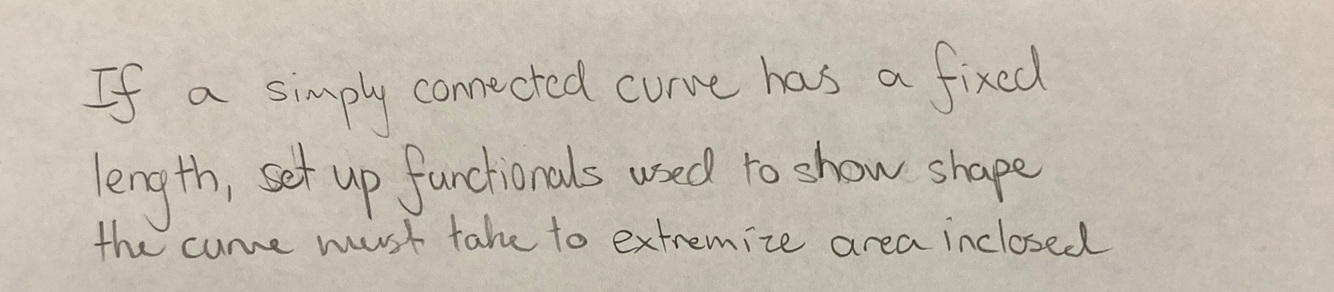 If a simply connected curve has a fixed
length, set up functionals used to show shape
the curve must take to extremize area inclosed